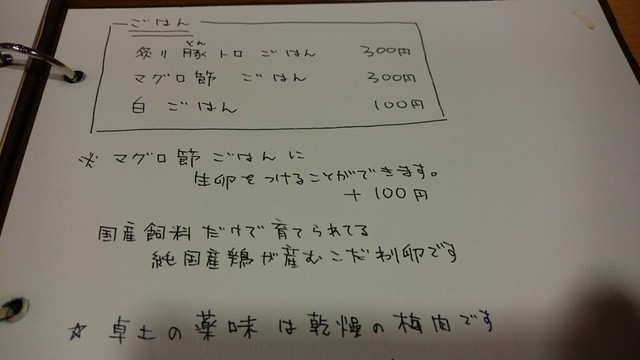 ごはん
とん
炙り豚トロ ごはん 300円
マグロ節 ごはん 300円
白 ごはん 100円
※ マグロ節 ごはんに
生卵をつけることができます。
+ 100円
国産飼料だけで育てられてる
純国産鶏が産むこだわり卵です
☆ 卓上の薬味は乾燥の梅肉です